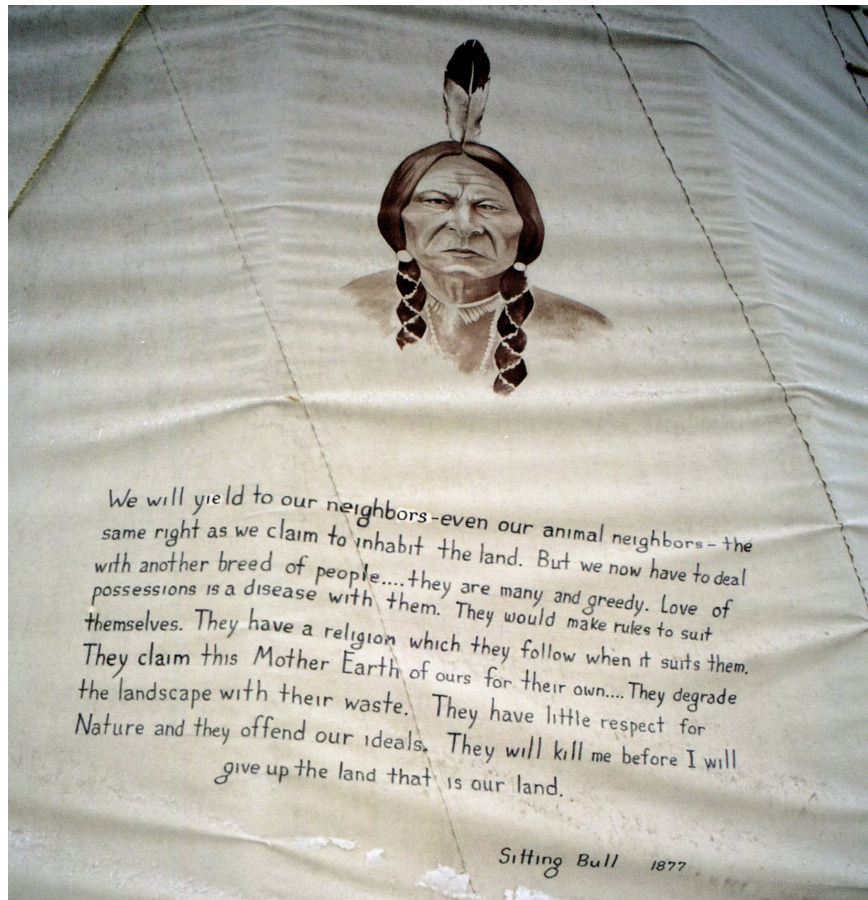 We will yield to our neighbors-even our animal neighbors- the
same right as we claim to inhabit the land. But we now have to deal
with another breed of people....they are many and greedy. Love of
possessions is a disease with them. They would make rules to suit
themselves. They have a religion which they follow when it suits them.
They claim this Mother Earth of ours for their own.... They degrade
the landscape with their waste. They have little respect for
Nature and they offend our ideals. They will kill me before I will
give up the land that is our land.
Sitting Bull 1877